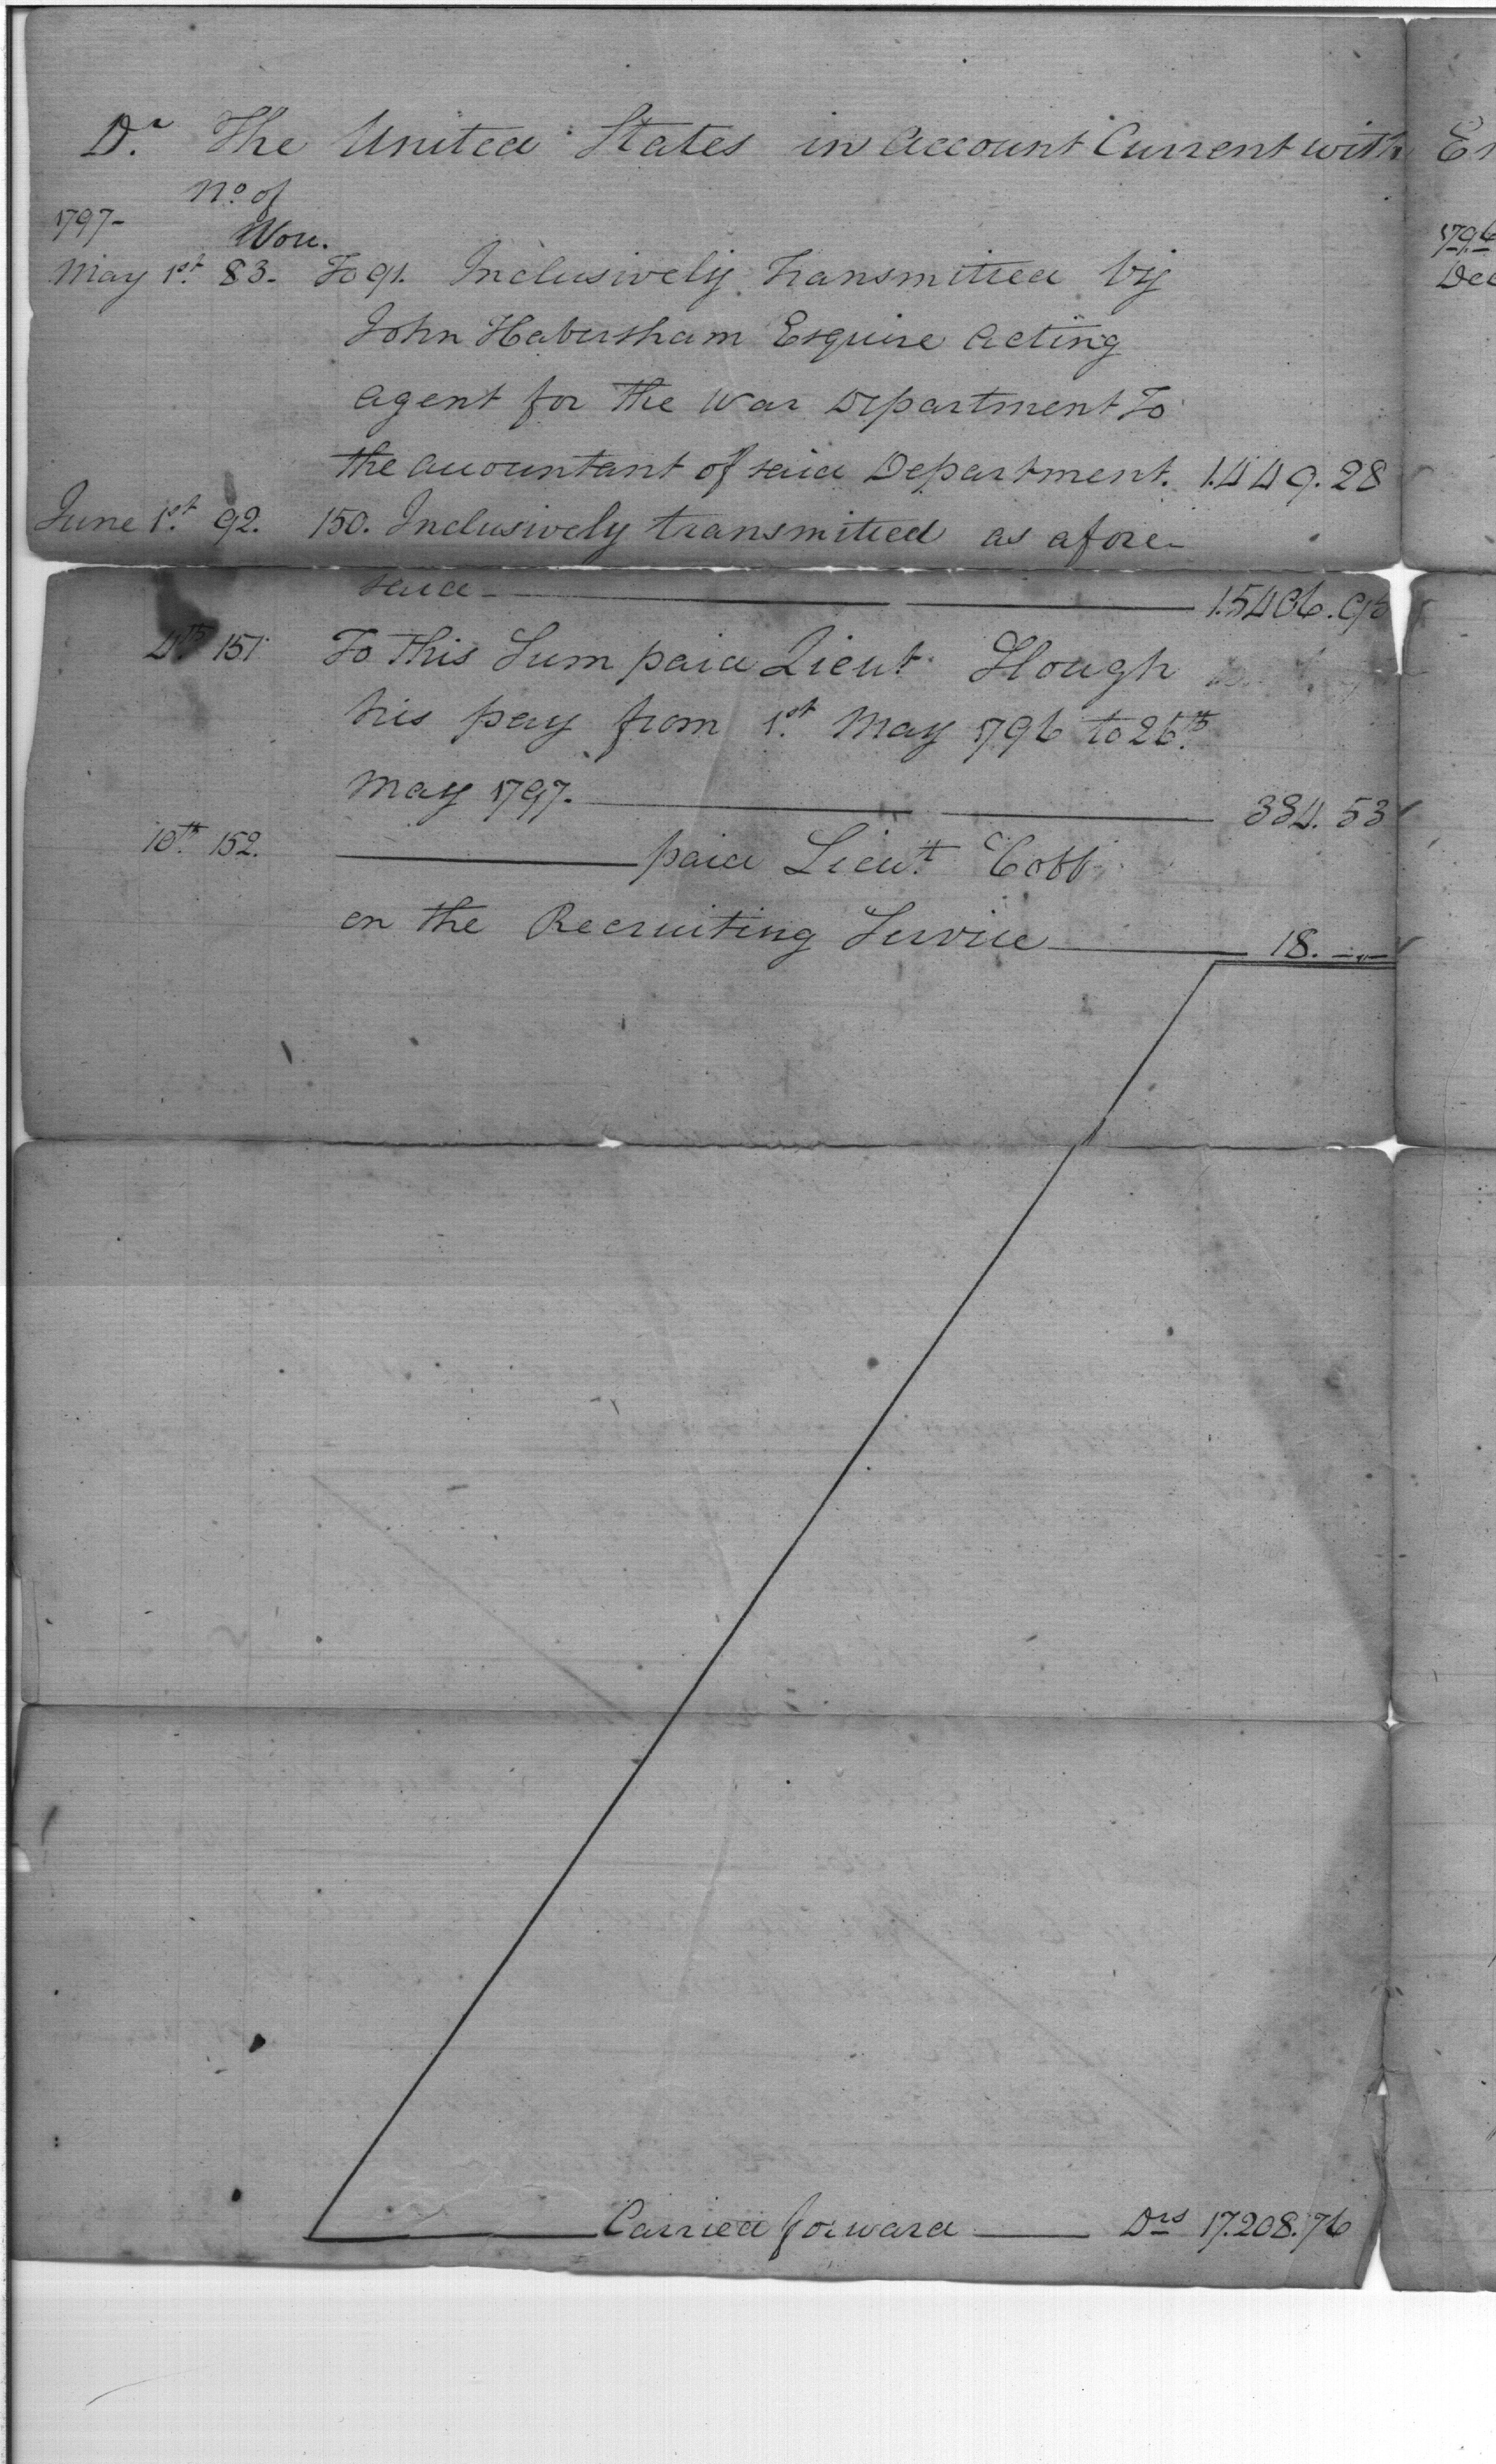 Dr. The United States in Account Current with
No. of
1797-
Vou.
May 1st. 83. To 91. Inclusively Transmitted by
John Habersham Esquire Acting
Agent for the War Department To
the accountant of said Department. 1.449.28
June 1st. 92. 150. Inclusively transmitted as afore-
said 15406.95
4th. 151. To This Sum paid Lieut. Hough
his pay from 1st. May 1796 to 26th.
May 1797. 334.53
10th. 152. paid Lieut. Cobb
on the Recruiting Service 18.--
Carried forward Drs 17.208.76
1796
Dec